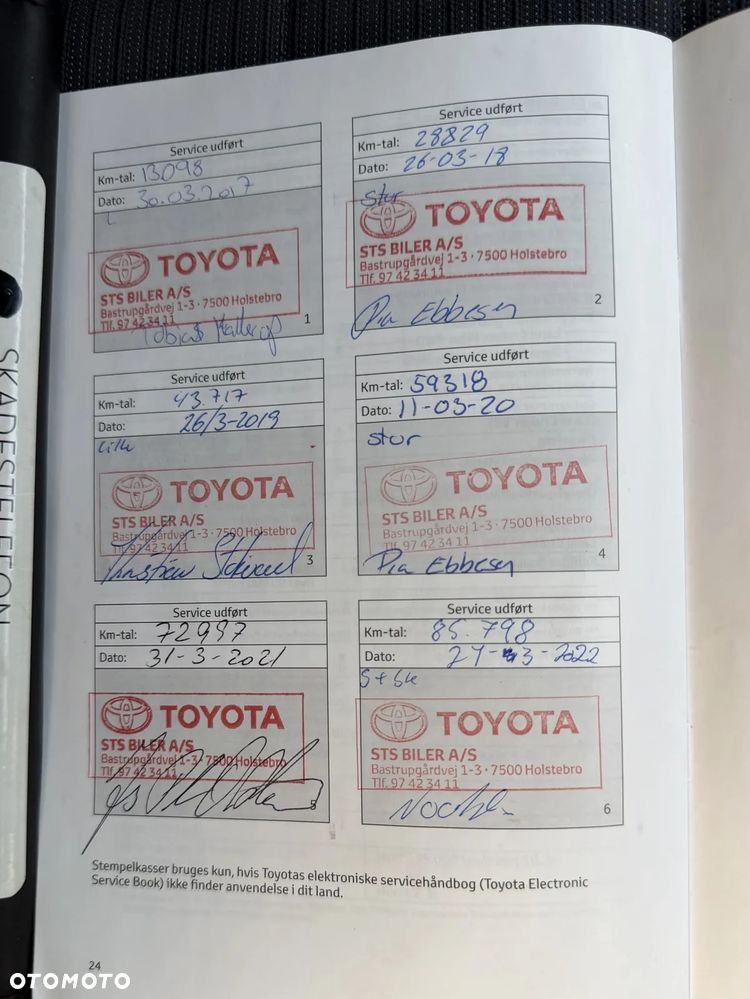 Service udført
Km-tal: 13098
Dato: 30.03.2017
L
TOYOTA
STS BILER A/S
Bastrupgårdvej 1-3 · 7500 Holstebro
Tlf. 97 42 34 11
Tobias
1
Service udført
Km-tal: 28829
Dato: 26-03-18
Stor
TOYOTA
STS BILER A/S
Bastrupgårdvej 1-3 · 7500 Holstebro
Tlf. 97 42 34 11
2
Pia Ebbesen
Service udført
Km-tal: 43.717
Dato: 26/3-2019
Lille
TOYOTA
STS BILER A/S
Bastrupgårdvej 1-3 · 7500 Holstebro
Tlf. 97 42 34 11
3
Service udført
Km-tal: 59318
Dato: 11-03-20
stor
TOYOTA
STS BILER A/S
Bastrupgårdvej 1-3 · 7500 Holstebro
Tlf. 97 42 34 11
4
Pia Ebbesen
Service udført
Km-tal: 72997
Dato: 31-3-2021
TOYOTA
STS BILER A/S
Bastrupgårdvej 1-3 · 7500 Holstebro
Tlf. 97 42 34 11
5
Service udført
Km-tal: 85.798
Dato: 24-3-2022
TOYOTA
STS BILER A/S
Bastrupgårdvej 1-3 · 7500 Holstebro
Tlf. 97 42 34 11
6
Stempelkasser bruges kun, hvis Toyotas elektroniske servicehåndbog (Toyota Electronic
Service Book) ikke finder anvendelse i dit land.
24
SKADESTELEFON
OTOMOTO